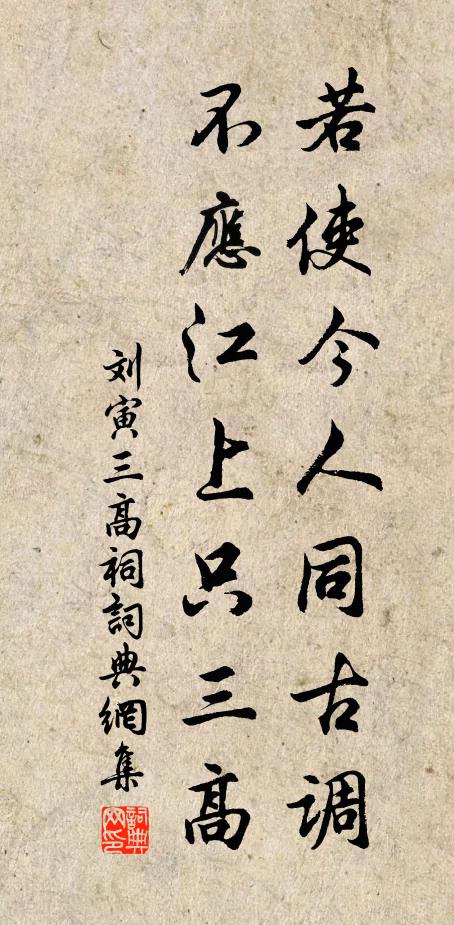 若使今人同古调
不應江上只三高
刘寅三高祠詞典網集
詞典网印